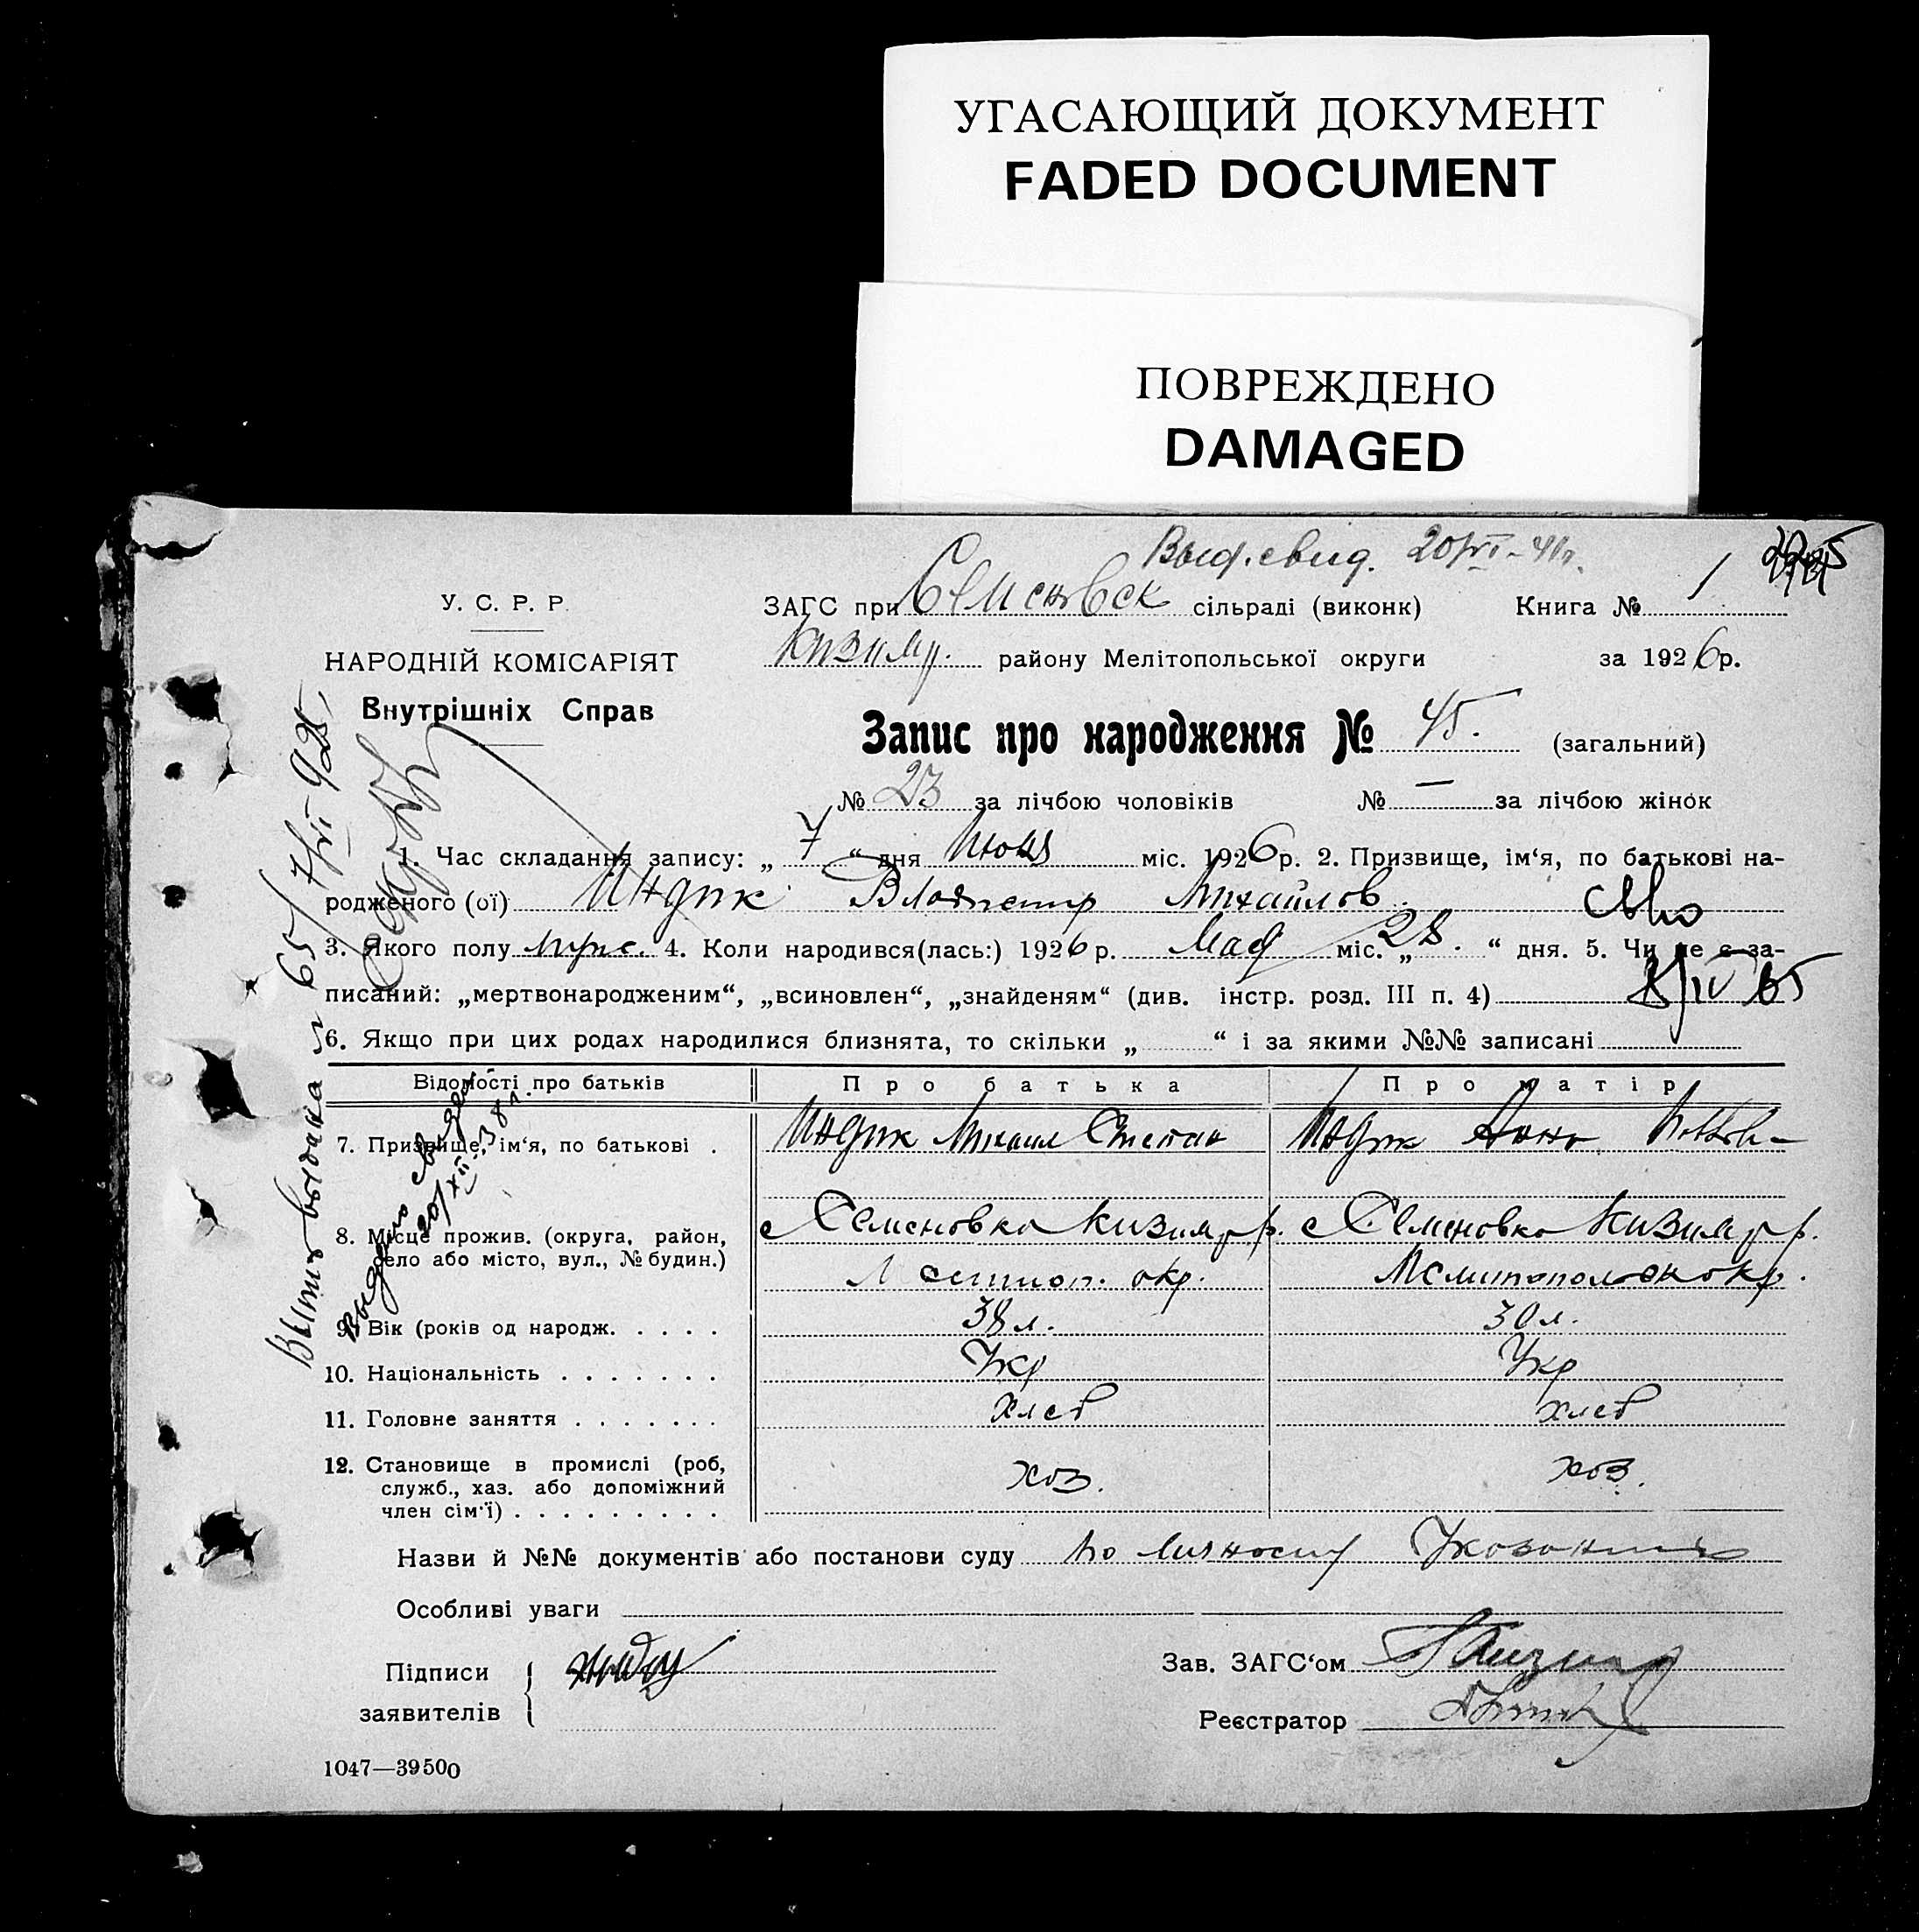 УГАСАЮЩИЙ ДОКУМЕНТ
FADED DOCUMENT
ПОВРЕЖДЕНО
DAMAGED
Выд. свид. 20/VI-41г.
У. С. Р. Р.
НАРОДНІЙ КОМІСАРІЯТ
Внутрішніх Справ
ЗАГС при Семеновск сільраді (виконк) Книга № 1
Кизияр. району Мелітопольської округи за 1926р.
Запис про народження № 45. (загальний)
№ 23 за лічбою чоловіків № — за лічбою жінок
1. Час складання запису: „ 7 “ дня Июня міс. 1926р. 2. Призвище, ім‘я, по батькові на-
родженого (ої) Индик Владимир Михайлов.
3. Якого полу муж. 4. Коли народився(лась:) 1926р. Мая міс. „ 28. “ дня. 5. Чи не є за-
писаний: „мертвонародженим“, „всиновлен“, „знайденям“ (див. інстр. розд. III п. 4)
6. Якщо при цих родах народилися близнята, то скільки „ “ і за якими №№ записані
Відомості про батьків Про батька Про матір
7. Призвище, ім‘я, по батькові . Индик Михаил Степан Индик Анна
8. Місце прожив. (округа, район, с Семеновка Кизияр р. с Семеновка Кизияр р.
село або місто, вул., № будин.) Мелитоп. окр. Мелитопольск окр.
9. Вік (років од народж. . . . . 38 л. 30 л.
10. Національність . . . . . . . Укр Укр
11. Головне заняття . . . . . . . хлеб хлеб
12. Становище в промислі (роб, хоз. хоз.
служб., хаз. або допоміжний
член сім‘ї) . . . . . . . . .
Назви й №№ документів або постанови суду по личному
Особливі уваги
Підписи
заявителів
Зав. ЗАГС‘ом
Реєстратор
1047—39500